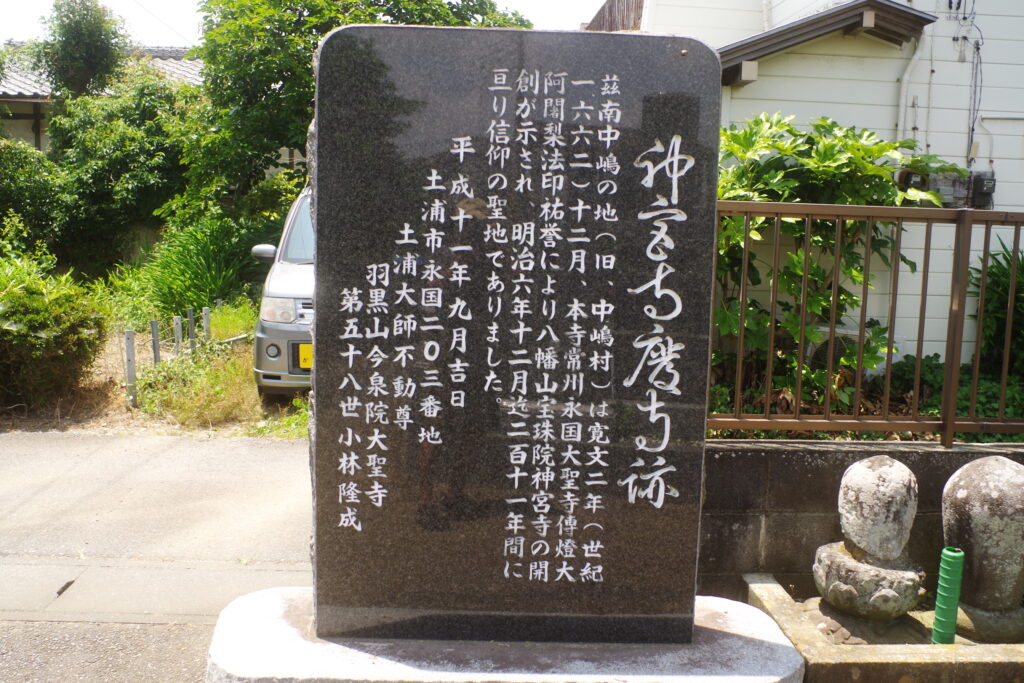 神宮寺廃寺跡
茲南中嶋の地（旧、中嶋村）は寛文二年（世紀
一六六二）十二月、本寺常州永国大聖寺傳燈大
阿闍梨法印祐誉により八幡山宝珠院神宮寺の開
創が示され、明治六年十二月迄二百十一年間に
亘り信仰の聖地でありました。
平成十一年九月吉日
土浦市永国二〇三番地
土浦大師不動尊
羽黒山今泉院大聖寺
第五十八世小林隆成